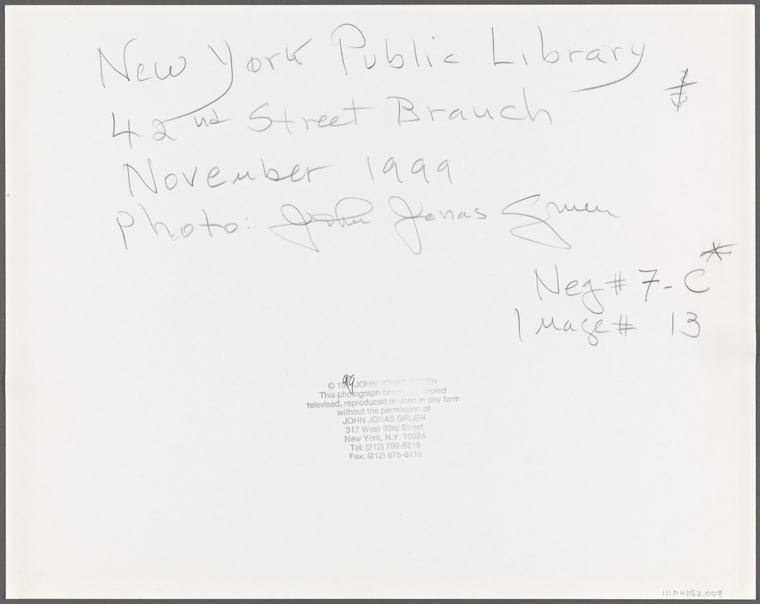 New York Public Library
42nd Street Branch
November 1999
Photo: John Jonas Gruen
Neg # 7-C*
Image # 13
© 1999 JOHN JONAS GRUEN
This photograph cannot be copied
televised, reproduced or used in any form
without the permission of
JOHN JONAS GRUEN
317 West 83rd Street
New York, N.Y. 10024
Tel: (212)
Fax: (212)
111PH052.008